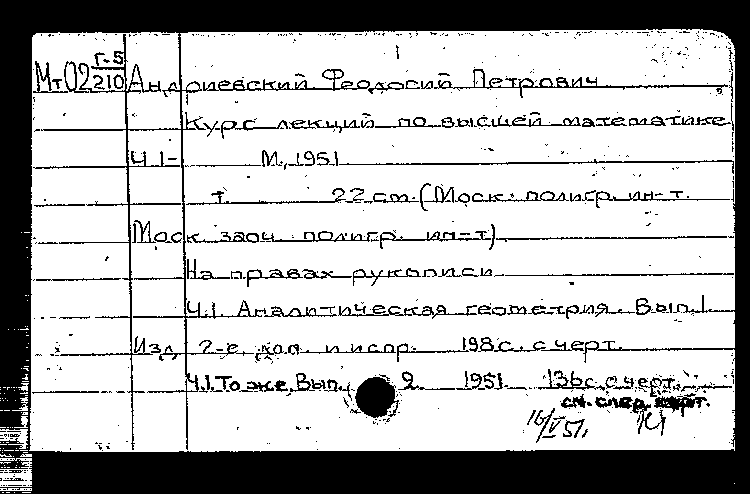 1
Мт02 г-5/210 Андриевский Феодосий Петрович
Курс лекций по высшей математике
Ч.1- М., 1951
т. 22 см. (Моск. полигр. ин-т.
Моск. заоч. полигр. ин-т)
На правах рукописи
Ч.1. Аналитическая геометрия. Вып.1.
Изд. 2-е, доп. и испр. 198 с. с черт.
Ч.1. То же, Вып. 2. 1951. 136 с. с черт.
см. след. карт.
16/V 51г.